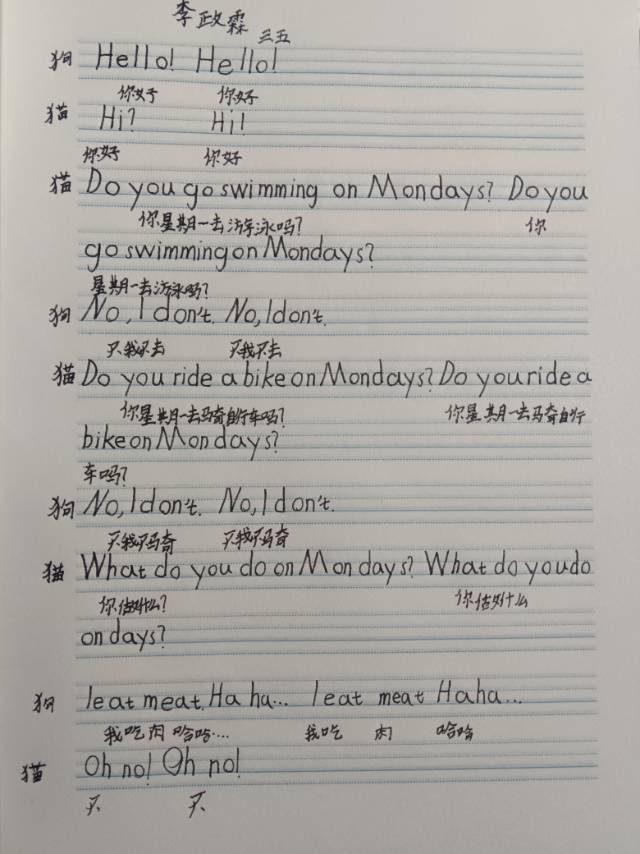 李政霖
三五
狗 Hello! Hello!
你好 你好
猫 Hi? Hi!
你好 你好
猫 Do you go swimming on Mondays? Do you
你星期一去游泳吗? 你
go swimming on Mondays?
星期一去游泳吗?
狗 No, I don't. No, I don't.
不我不去 不我不去
猫 Do you ride a bike on Mondays? Do you ride a
你星期一去骑自行车吗? 你星期一去骑自行
bike on Mondays?
车吗?
狗 No, I don't. No, I don't.
不我不骑 不我不骑
猫 What do you do on Mondays? What do you do
你估对什么? 你估对什么
on days?
狗 I eat meat. Ha ha... I eat meat Ha ha...
我吃肉 哈哈... 我吃 肉 哈哈
猫 Oh no! Oh no!
不 不